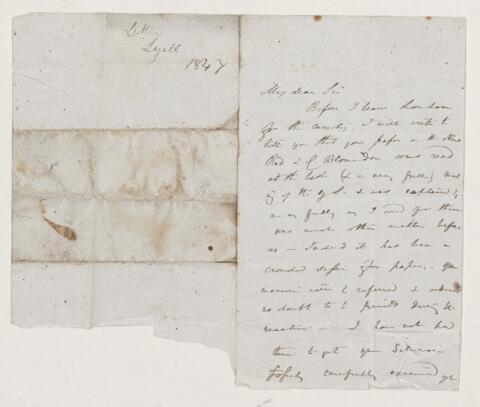 Lett.
Lyell.
1847
My dear Sir
Before I leave London
for the country I will write to
tell you that your paper on the New
Red & C. Blomidon was read
at the last (& a very full) meet
ing of the G.S. & was explained by
me as fully as I could for there
was much other matter before
us — Indeed it has been a
crowded session for papers. — Your
memoir will be referred & ordered
no doubt to be printed during the
vacation — I have not had
time to get your Silurian
fossils carefully examined yet